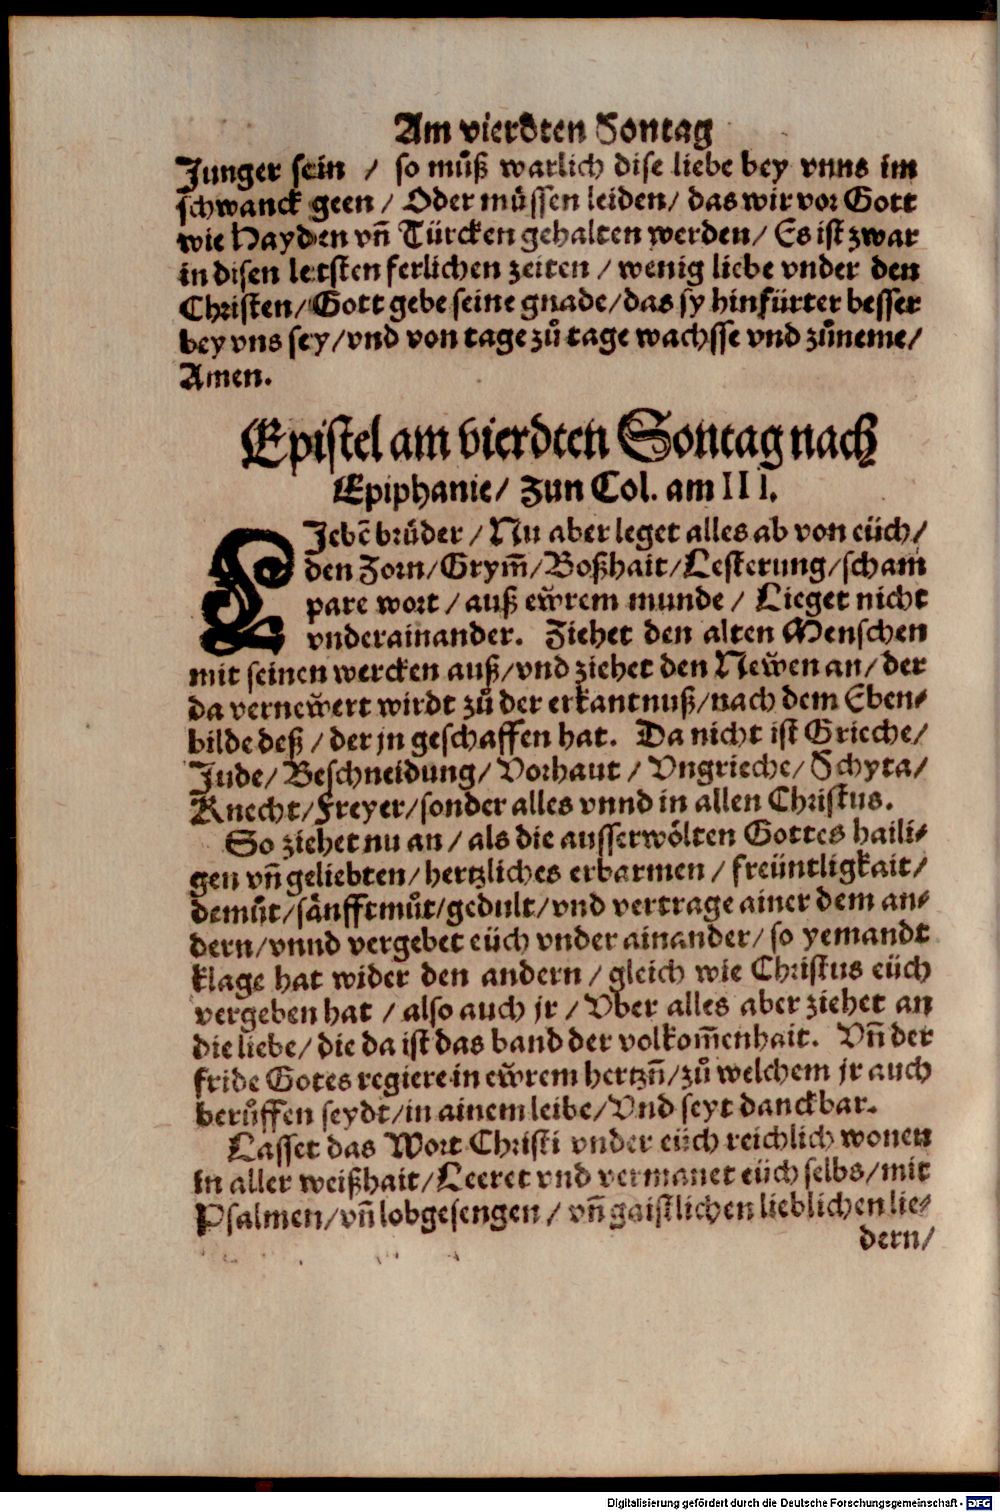 Am vierdten Sontag
Junger sein / so muͦß warlich dise liebe bey vnns im
schwanck geen / Oder müssen leiden / das wir vor Gott
wie Hayden vñ Türcken gehalten werden / Es ist zwar
in disen letsten ferlichen zeiten / wenig liebe vnder den
Christen / Gott gebe seine gnade / das sy hinfürter besser
bey vns sey / vnd von tage zuͦ tage wachsse vnd zuͦneme /
Amen.
Epistel am vierdten Sontag nach
Epiphanie / Zun Col. am III.
LIebẽ bruͤder / Nu aber leget alles ab von eüch /
den Zorn / Grym̃ / Boßhait / Lesterung / scham
pare wort / auß ewͤrem munde / Lieget nicht
vnderainander. Ziehet den alten Menschen
mit seinen wercken auß / vnd ziehet den Newͤen an / der
da vernewͤert wirdt zuͦ der erkantnuß / nach dem Eben-
bilde deß / der jn geschaffen hat. Da nicht ist Grieche /
Jude / Beschneidung / Vorhaut / Vngrieche / Schyta /
Knecht / Freyer / sonder alles vnnd in allen Christus.
So ziehet nu an / als die ausserwoͤlten Gottes haili-
gen vñ geliebten / hertzliches erbarmen / freüntligkait /
demuͦt / saͤnfftmuͦt / gedult / vnd vertrage ainer dem an-
dern / vnnd vergebet eüch vnder ainander / so yemandt
klage hat wider den andern / gleich wie Christus eüch
vergeben hat / also auch jr / Vber alles aber ziehet an
die liebe / die da ist das band der volkom̃enhait. Vñ der
fride Gotes regiere in ewͤrem hertzñ / zuͦ welchem jr auch
beruͦffen seydt / in ainem leibe / Vnd seyt danckbar.
Lasset das Wort Christi vnder eüch reichlich wonen
in aller weißhait / Leeret vnd vermanet eüch selbs / mit
Psalmen / vñ lobgesengen / vñ gaistlichen lieblichen lie-
dern /
Digitalisierung gefördert durch die Deutsche Forschungsgemeinschaft - DFG